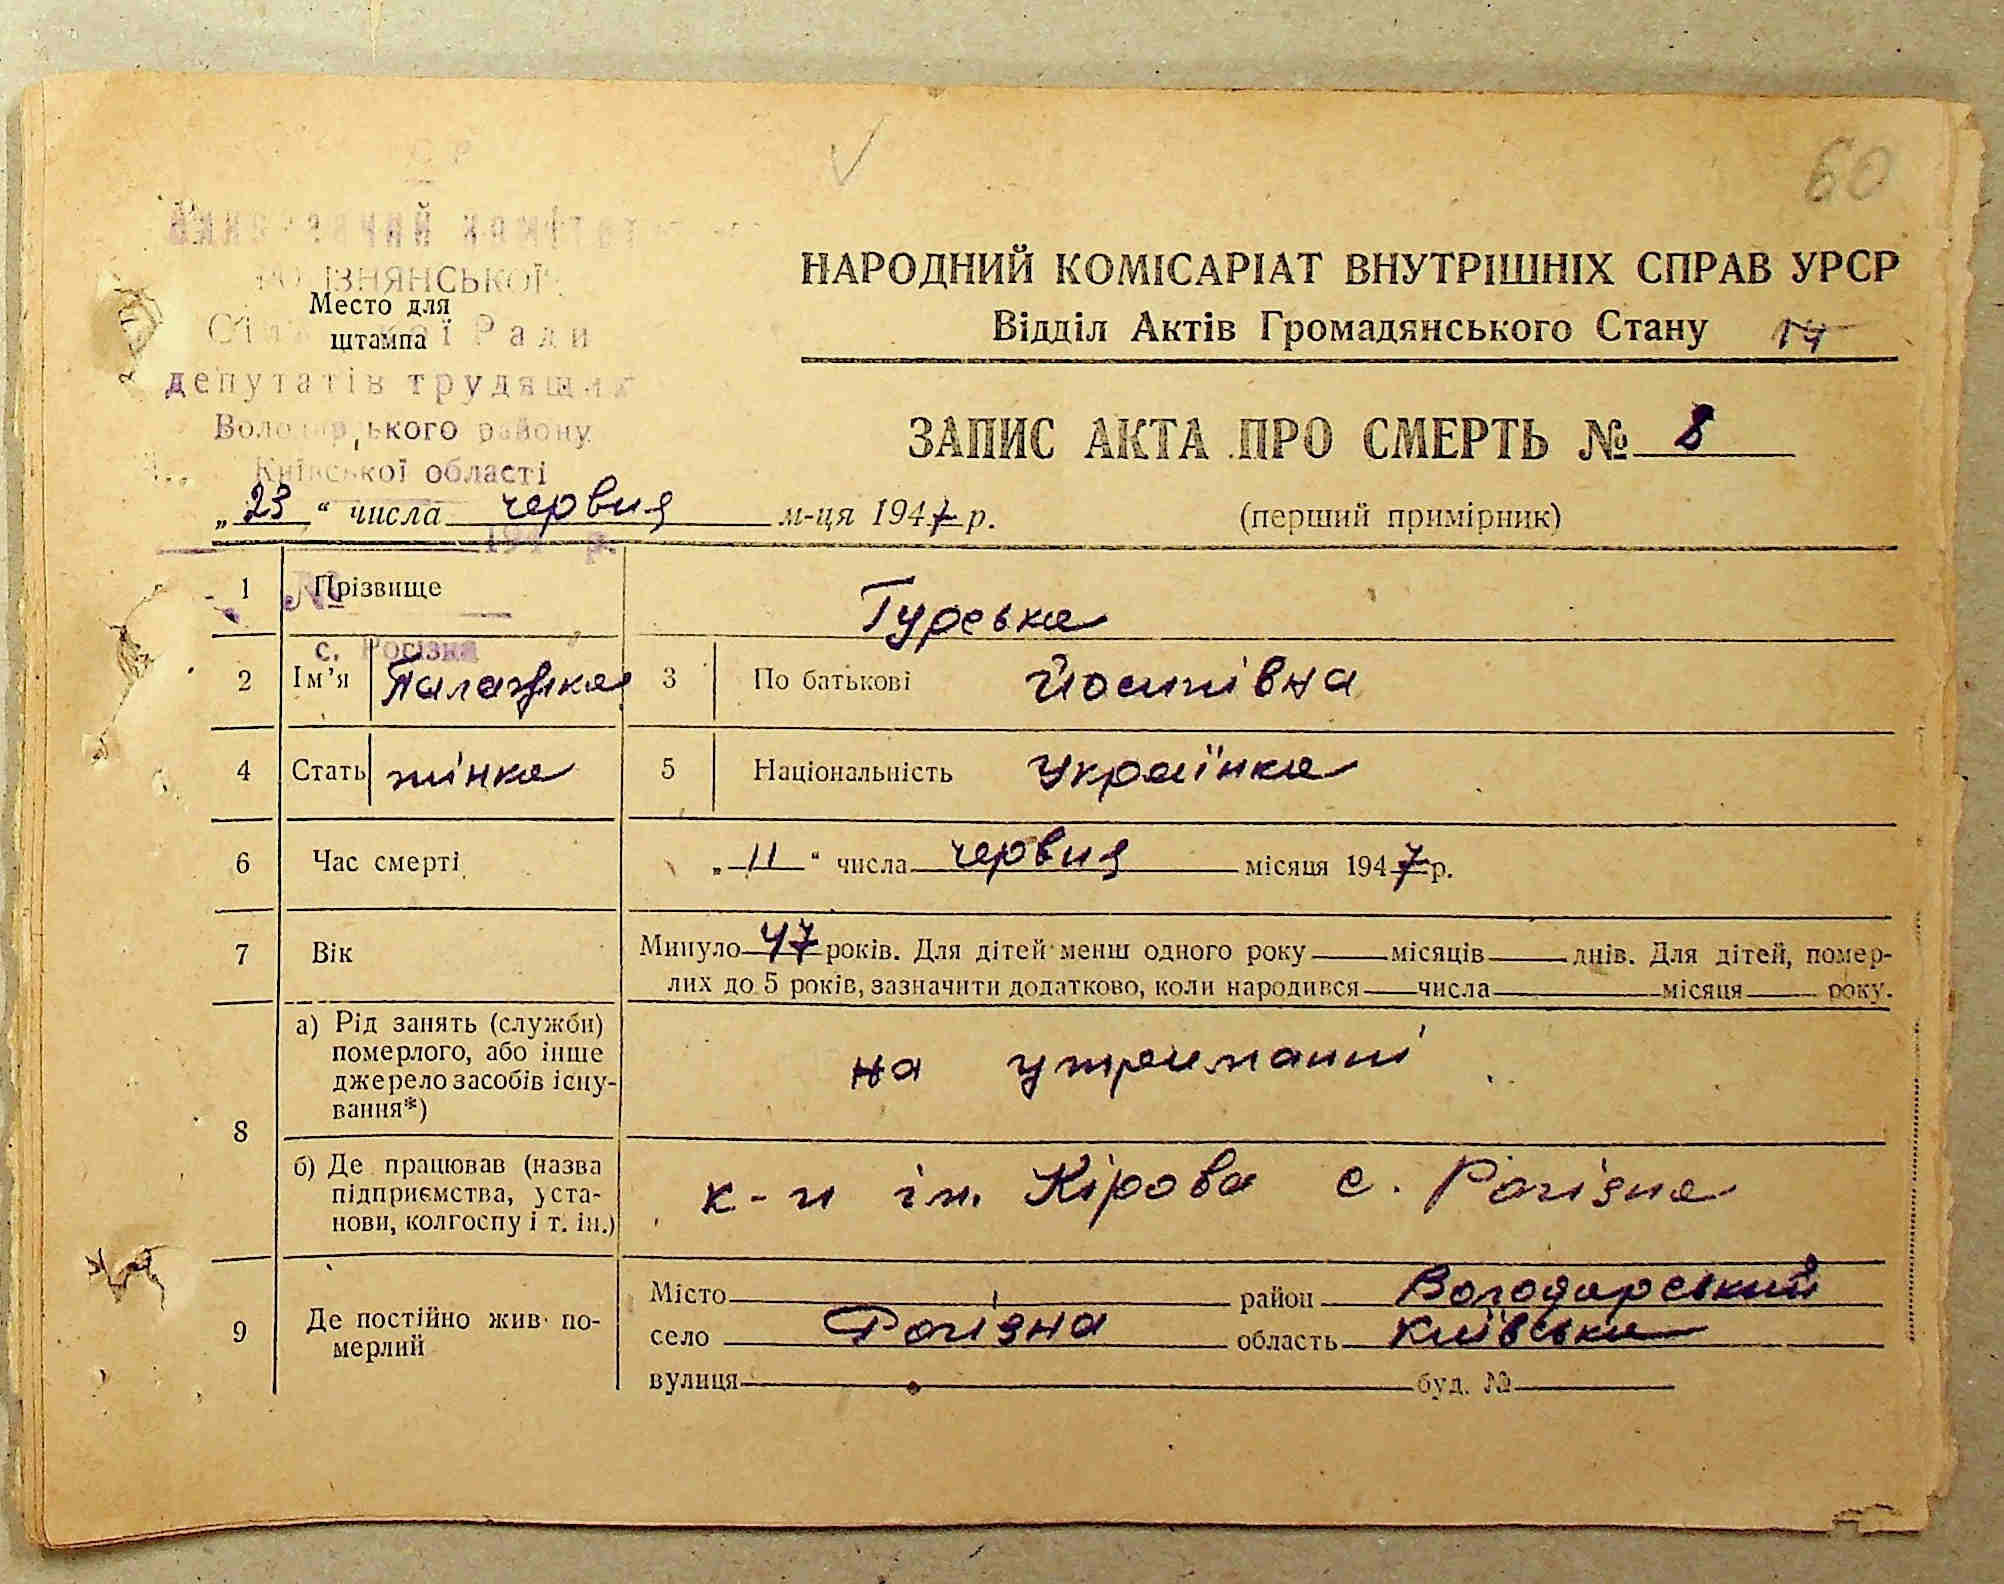 60
РОГІЗНЯНСЬКОЇ
Место для
штампа
Ради
депутатів трудящих
Володарського району
Київської області
194 р.
№
с. Рогізна
НАРОДНИЙ КОМІСАРІАТ ВНУТРІШНІХ СПРАВ УРСР
Відділ Актів Громадянського Стану 14
ЗАПИС АКТА ПРО СМЕРТЬ № 8
„23“ числа червня м-ця 1947 р.
(перший примірник)
1 Прізвище Гурська
2 Ім’я Палажка 3 По батькові Йосипівна
4 Стать жінка 5 Національність Українка
6 Час смерті „11“ числа червня місяця 1947 р.
7 Вік Минуло 47 років. Для дітей менш одного року місяців днів. Для дітей, помер-
лих до 5 років, зазначити додатково, коли народився числа місяця року.
8 а) Рід занять (служби)
померлого, або інше
джерело засобів існу-
вання*)
на утриманні
б) Де працював (назва
підприємства, уста-
нови, колгоспу і т. ін.)
к-п ім. Кірова с. Рогізна
9 Де постійно жив по-
мерлий
Місто район Володарський
село Рогізна область Київська
вулиця буд. №